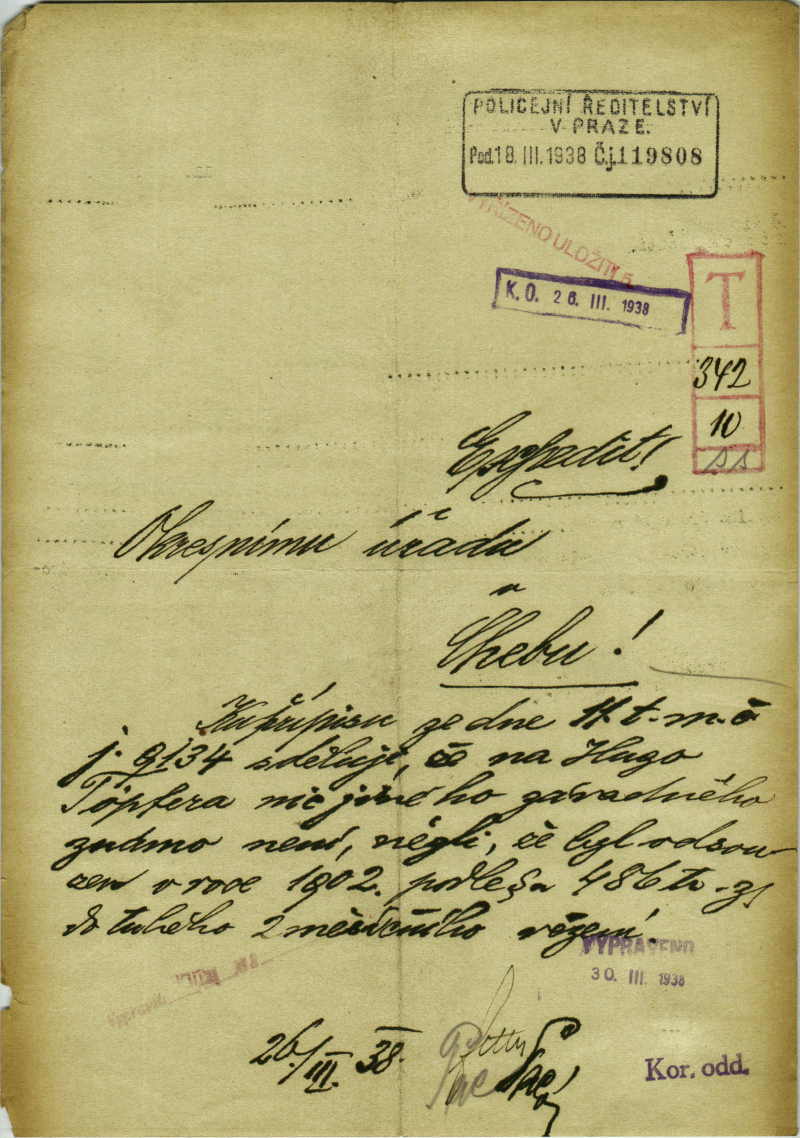 POLICEJNÍ ŘEDITELSTVÍ
V PRAZE.
Pod. 18. III. 1938 Č.j. 119808
ULOŽITI
K. O. 26. III. 1938
T
342
10
Okresnímu úřadu
v
Chebu!
K přípisu ze dne 11. t. m. č
j. 9134 sděluji, že na Hugo
Töpfera nic jiného závadného
známo není, nežli, že byl odsou
zen v roce 1902. podle §u 486 tr. z
do tuhého 2 měsíčního vězení.
VYPRAVENO
30. III. 1938
26./III. 38.
Kor. odd.